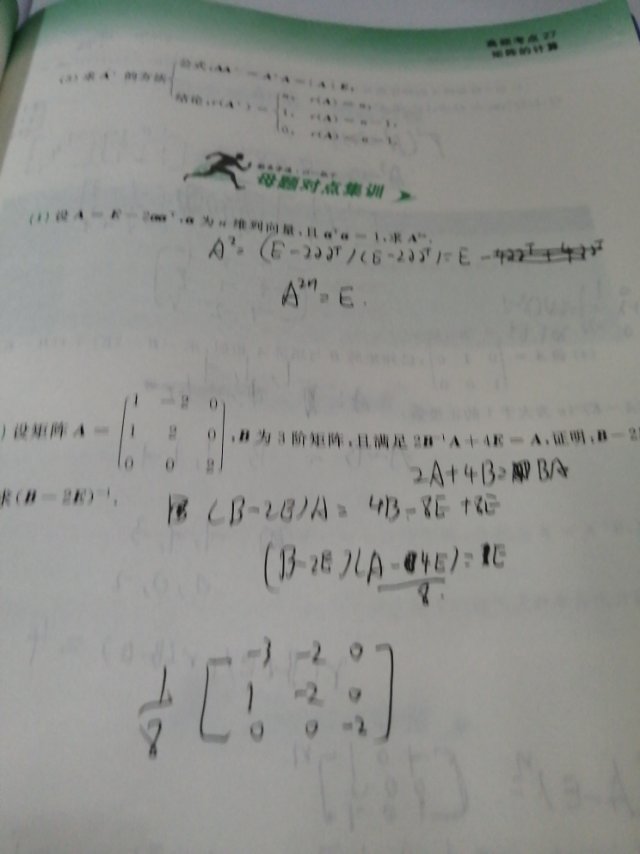 真题考点 27
矩阵的计算
(3) 求 A* 的方法
公式:AA* = A*A = |A|E;
结论:r(A*) =
n, r(A) = n,
1, r(A) = n-1,
0, r(A) < n-1.
母题对点集训
(1) 设 A = E - 2αα^T, α 为 n 维列向量,且 α^Tα = 1,求 A^n.
A² = (E-2αα^T)(E-2αα^T) = E - 4αα^T + 4αα^T
A^2n = E.
) 设矩阵 A = [1 -2 0; 1 2 0; 0 0 2], B 为 3 阶矩阵,且满足 2B^-1A + 4E = A,证明:B - 2
2A + 4B = BA
求(B - 2E)^-1.
(B-2E)A = 4B - 8E + 8E
(B-2E)(A-4E)/8 = E
1/8 [-3 -2 0
1 -2 0
0 0 -2]